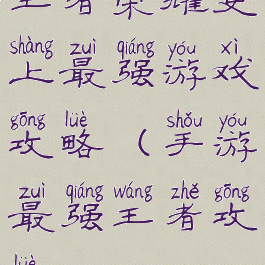 王者荣耀史
shàng zuì qiáng yóu xì
上最强游戏
gōng lüè shǒu yóu
攻略(手游
zuì qiáng wáng zhě gōng
最强王者攻
lüè